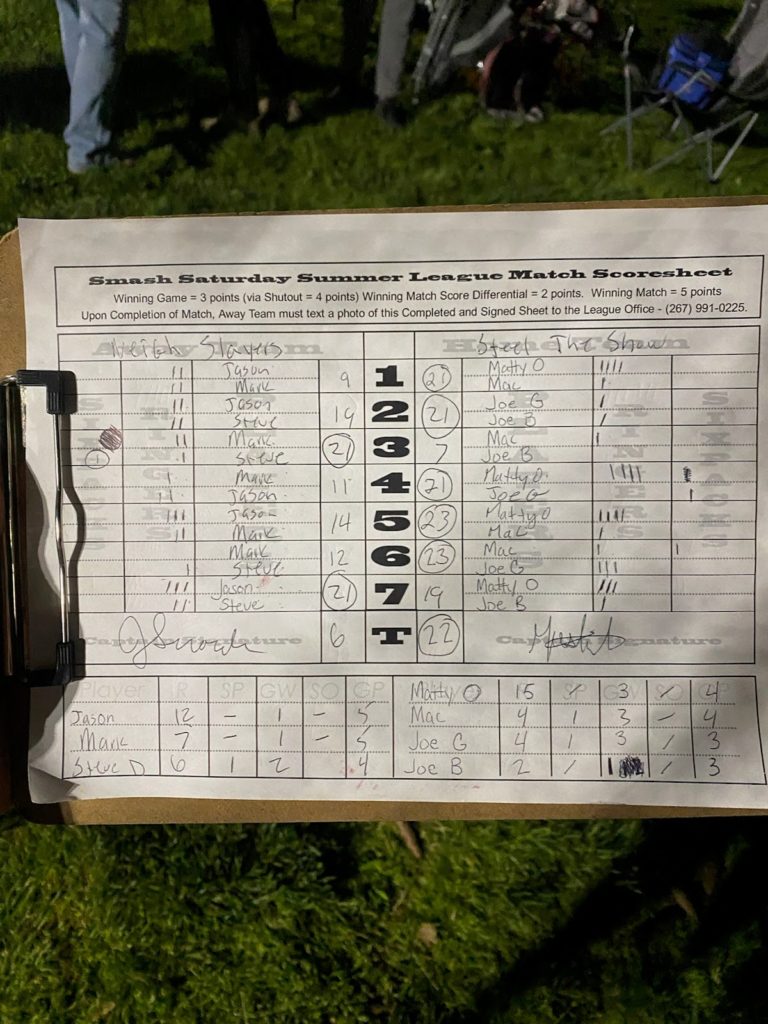 Smash Saturday Summer League Match Scoresheet
Winning Game = 3 points (via Shutout = 4 points) Winning Match Score Differential = 2 points. Winning Match = 5 points
Upon Completion of Match, Away Team must text a photo of this Completed and Signed Sheet to the League Office - (267) 991-0225.
Slayers Steel The Show
Jason 9 1 21 Matty O
Mark Mac
Jason 19 2 21 Joe G
Steve Joe B
Mark 21 3 7 Mac
1 Steve Joe B
Mark 11 4 21 Matty O
Jason Joe G
Jason 14 5 23 Matty O
Mark Mac
Mark 12 6 23 Mac
Steve Joe G
Jason 21 7 19 Matty O
Steve Joe B
Captain Signature 6 T 22 Captain Signature
Player R SP GW SO GP Matty O 15 SP 3 4
Jason 12 - 1 - 5 Mac 4 1 3 - 4
Mark 7 - 1 - 5 Joe G 4 1 3 / 3
Steve D 6 1 2 4 Joe B 2 / 1 / 3